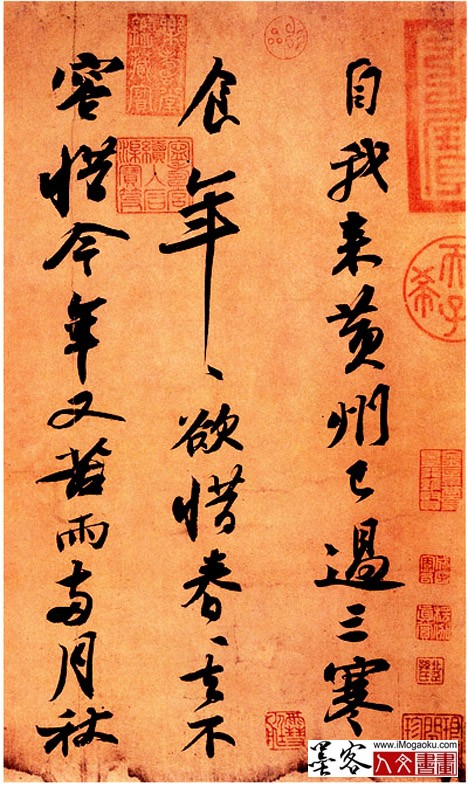 自我来黄州已過三寒
食年〻欲惜春〻去不
容惜今年又苦雨兩月秋
天子
古希
墨客
www.iMogaoku.com
人文書畫